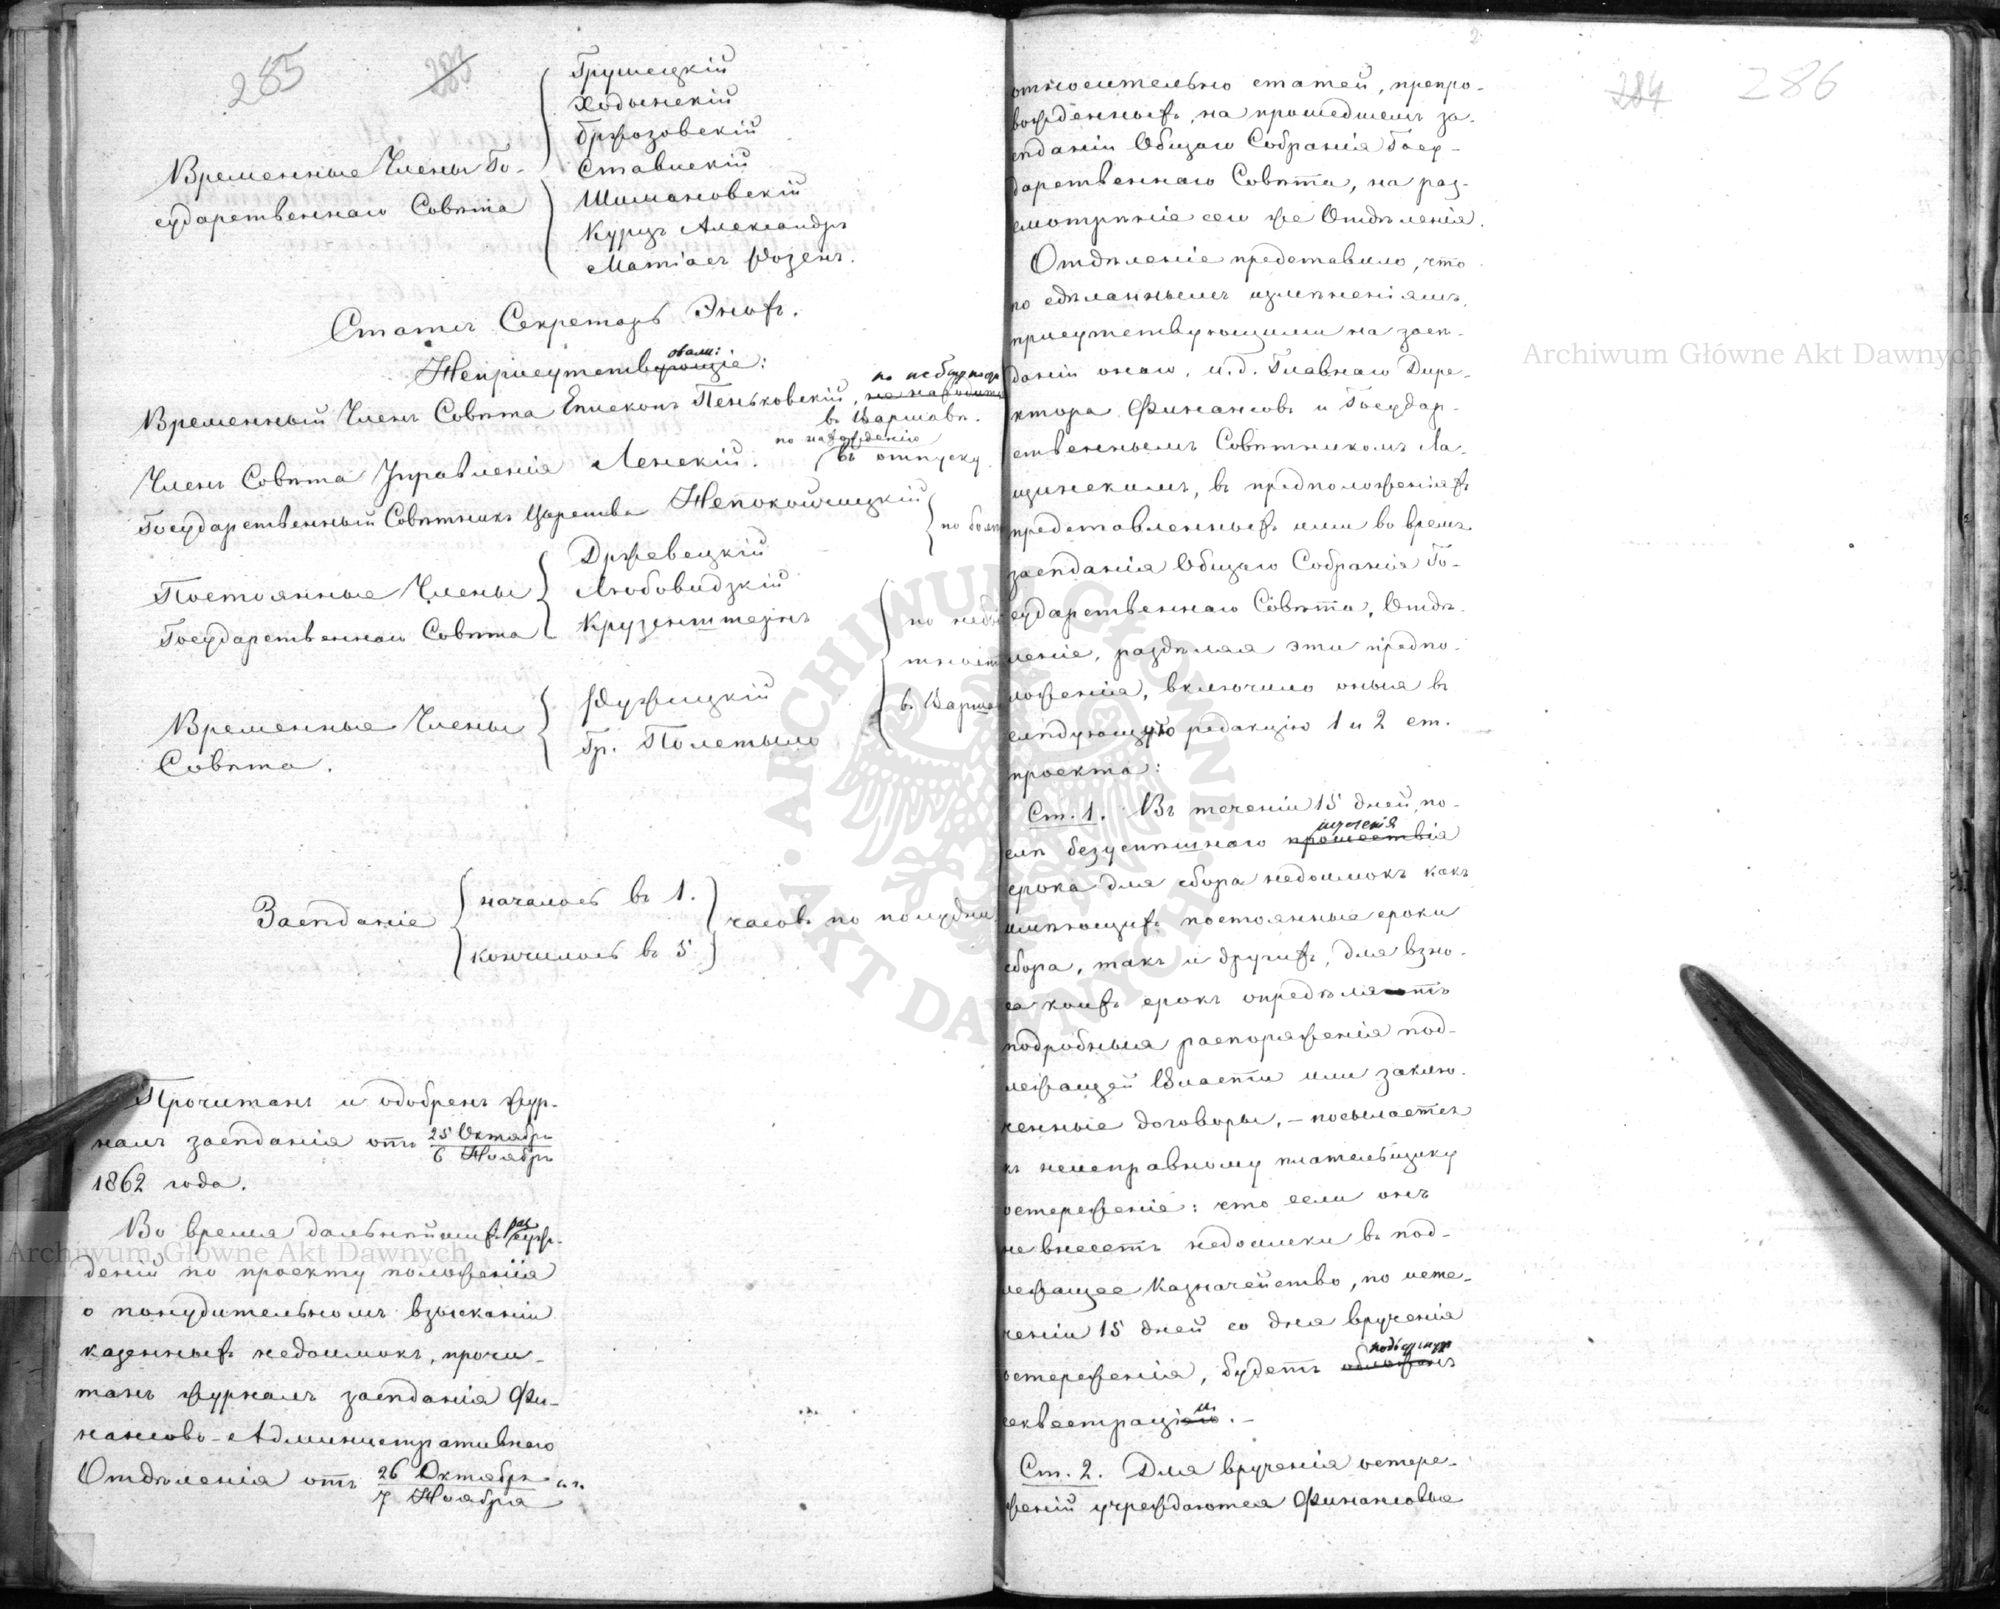 285
283
Грушецкій
Ходынскій
Бржозовскій
Временные Члены Го-
Ставискій
сударственнаго Совѣта
Шимановскій
Курцъ Александръ
Матіасъ Розенъ.
Статсъ Секретарь Энохъ.
овали:
Неприсутствующіе:
Временный Членъ Совѣта Епископъ Пеньковскій,
въ Варшавѣ.
по нахожденію
Членъ Совѣта Управленія Ленскій. въ отпуску
Государственный Совѣтникъ Царства Непокойчицкій по болѣ
Постоянные Члены
Государственнаго Совѣта
Држевецкій
Любовидзкій
Крузенштернъ
Временные Члены
Совѣта.
Ружицкій
Гр. Полетыло
по небы
тност
въ Варша
Засѣданіе началось въ 1. часовъ по полудни
кончилось въ 5
Прочитанъ и одобренъ жур-
налъ засѣданія отъ 25 Октября
6 Ноября
1862 года.
Во время дальнѣйшихъ разсуж-
деній по проекту положенія
о понудительномъ взысканіи
казенныхъ недоимокъ, прочи-
танъ журналъ засѣданія Фи-
нансово-Административнаго
Отдѣленія отъ 26 Октября
7 Ноября
с.г.
2
284
286
относительно статей, препро-
вожденныхъ, на прошедшемъ за-
сѣданіи Общаго Собранія Госу-
дарственнаго Совѣта, на раз-
смотрѣніе сего же Отдѣленія.
Отдѣленіе представило, что
по сдѣланнымъ измѣненіямъ,
присутствующими на засѣ-
даніи онаго, и.д. Главнаго Дире-
ктора Финансовъ и Государ-
ственнымъ Совѣтникомъ Ла-
щинскимъ, въ предположеніяхъ
представленныхъ ими во время
засѣданія Общаго Собранія Го-
сударственнаго Совѣта, Отдѣ-
леніе, раздѣляя эти предпо-
ложенія, включило оныя въ
слѣдующую редакцію 1 и 2 ст.
проекта:
Ст. 1. Въ теченіи 15 дней по-
истеченія
слѣ безуспѣшнаго прошествія
срока для сбора недоимокъ какъ
имѣющихъ постоянные сроки
сбора, такъ и другихъ, для взно-
са коихъ срокъ опредѣляютъ
подробныя распоряженія под-
лежащей Власти или заклю-
ченные договоры, – посылается
къ неисправному плательщику
остереженіе: что если онъ
не внесетъ недоимки въ под-
лежащее Казначейство, по исте-
ченіи 15 дней со дня врученія
остереженія, будетъ обложенъ
секвестраціею. –
Ст. 2. Для врученія остере-
женій учреждаются Финансовые
Archiwum Główne Akt Dawnych
Archiwum Główne Akt Dawnych
ARCHIWUM GŁÓWNE
AKT DAWNYCH